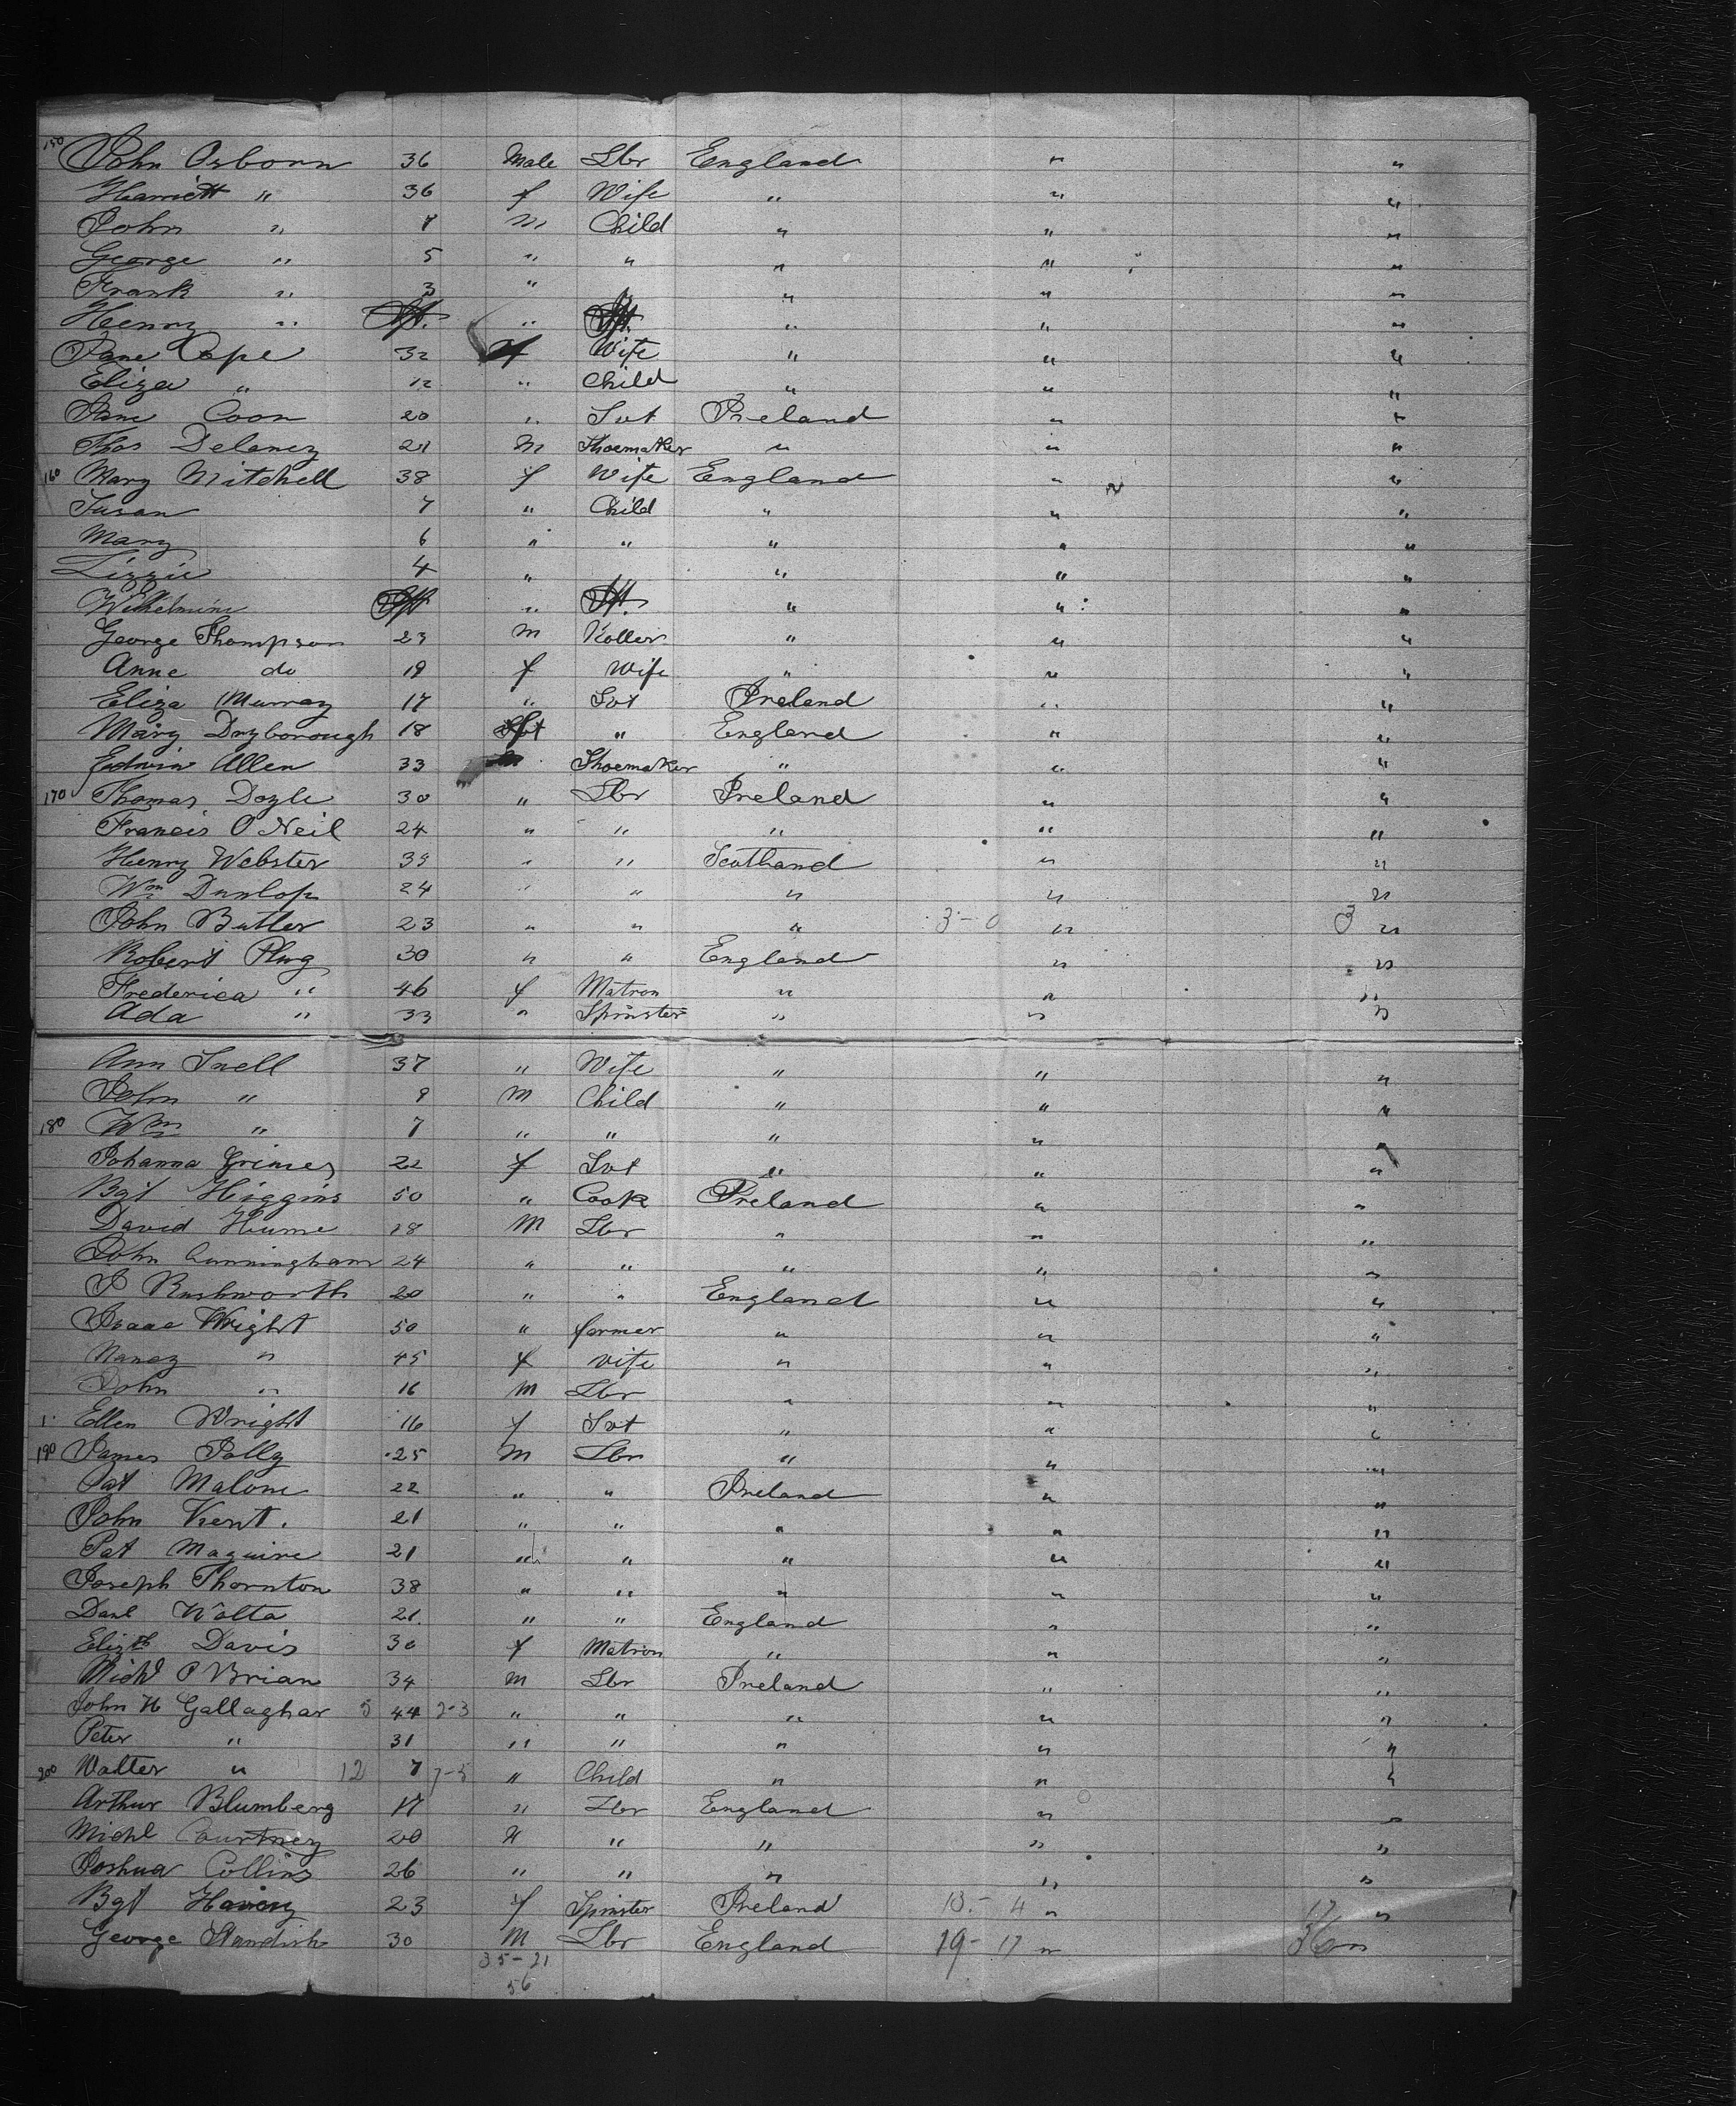 150 John Osborn 36 Male Lbr England " "
Harriett " 36 f Wife " " "
John " 7 m Child " " "
George " 5 " " " " "
Frank " 3 " " " " "
Henry " Inft. " Inft. " " "
Jane Cope 32 f Wife " " "
Eliza " 12 " Child " " "
Jane Coon 20 " Svt Ireland " "
Thos Delaney 21 M Shoemaker " " "
160 Mary Mitchell 38 f Wife England " "
Susan 7 " Child " " "
Mary 6 " " " " "
Lizzie 4 " " " " "
Wilhelmine Inft " Inft. " " "
George Thompson 23 m " " "
Anne do 19 f Wife " " "
Eliza Murray 17 " Svt Ireland " "
Mary Dryborough 18 " England " "
Edwin Allen 33 m Shoemaker " " "
170 Thomas Doyle 30 " Lbr Ireland " "
Francis O Neil 24 " " " " "
Henry Webster 39 " " Scotland " "
Wm Dunlop 24 " " " " "
John Butler 23 " " " 3 - 0 " 3 "
Robert Plug 30 " " England " "
Frederica " 46 f Matron " " "
Ada " 33 " Spinster " " "
Ann Snell 37 " Wife " " "
John " 9 M Child " " "
180 Wm " 7 " " " " "
Johanna Grimes 22 f Svt " " "
Bgt Higgins 50 " Cook Ireland " "
David Hume 18 M Lbr " " "
John Cunningham 24 " " " " "
J Rushworth 20 " " England " "
Isaac Wright 50 " farmer " " "
Nancy " 45 f wife " " "
John " 16 M Lbr " " "
Ellen Wright 16 f Svt " " "
190 James Jolly 25 M Lbr " " "
Pat Malone 22 " " Ireland " "
John Kent. 21 " " " " "
Pat Maguire 21 " " " " "
Joseph Thornton 38 " " " " "
Danl Wolta 21 " " England " "
Elizth Davis 30 f Matron " " "
Michl O Brian 34 M Lbr Ireland " "
John H Gallaghar 5 44 2-3 " " " " "
Peter " 31 " " " " "
200 Walter " 12 7 7-5 " Child " " "
Arthur Blumberg 17 " Lbr England " "
Michl Courtney 20 " " " " "
Joshua Collins 26 " " " " "
Bgt 23 f Spinster Ireland 13 - 4 " 17 "
George Standish 30 M Lbr England 19 - 17 " 36 "
35-21
56